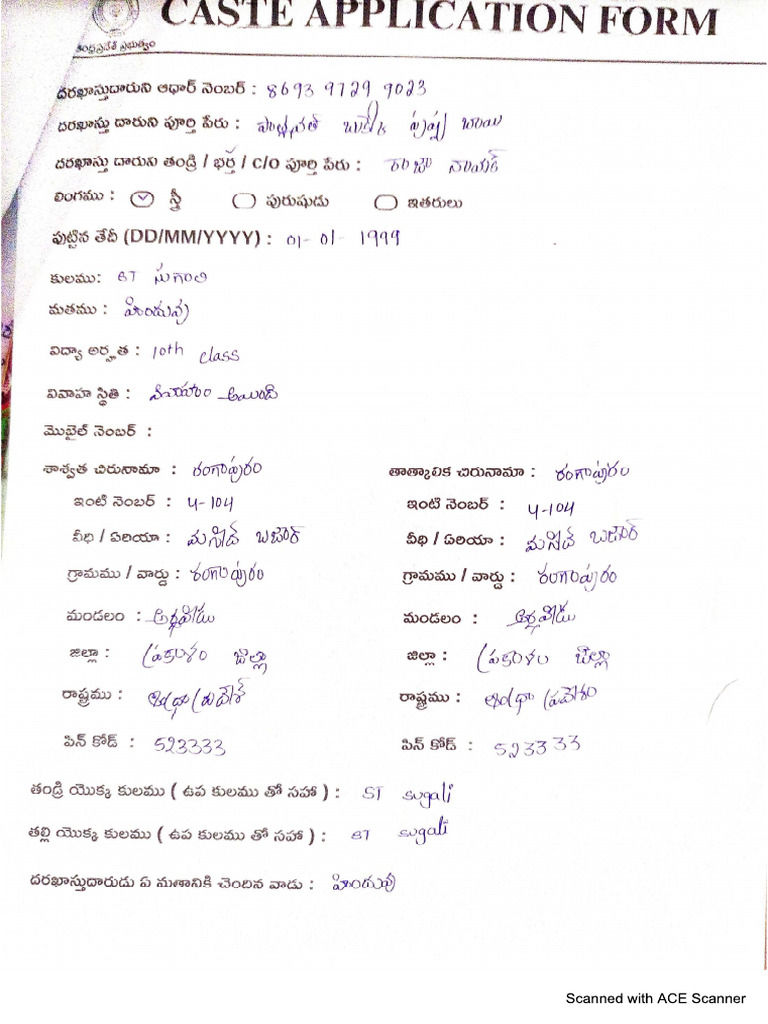 CASTE APPLICATION FORM
ఆంధ్రప్రదేశ్ ప్రభుత్వం
దరఖాస్తుదారుని ఆధార్ నెంబర్ : 8693 9729 9023
దరఖాస్తు దారుని పూర్తి పేరు : బాయి
దరఖాస్తు దారుని తండ్రి / భర్త / c/o పూర్తి పేరు : రాజా నాయక్
లింగము : స్త్రీ పురుషుడు ఇతరులు
పుట్టిన తేదీ (DD/MM/YYYY) : 01-01-1999
కులము: ST సుగాలి
మతము : హిందువు
విద్యా అర్హత : 10th class
వివాహ స్థితి : అయింది
మొబైల్ నెంబర్ :
శాశ్వత చిరునామా : రంగాపురం తాత్కాలిక చిరునామా : రంగాపురం
ఇంటి నెంబర్ : 4-104 ఇంటి నెంబర్ : 4-104
వీధి / ఏరియా : మసీద్ బజార్ వీధి / ఏరియా : మసీద్ బజార్
గ్రామము / వార్డు : రంగాపురం గ్రామము / వార్డు : రంగాపురం
మండలం : అర్ధవీడు మండలం : అర్ధవీడు
జిల్లా : ప్రకాశం జిల్లా జిల్లా : ప్రకాశం జిల్లా
రాష్ట్రము : ఆంధ్రా ప్రదేశ్ రాష్ట్రము : ఆంధ్రా ప్రదేశం
పిన్ కోడ్ : 523333 పిన్ కోడ్ : 523333
తండ్రి యొక్క కులము ( ఉప కులము తో సహా ) : ST sugali
తల్లి యొక్క కులము ( ఉప కులము తో సహా ) : ST sugali
దరఖాస్తుదారుడు ఏ మతానికి చెందిన వాడు : హిందువు
Scanned with ACE Scanner